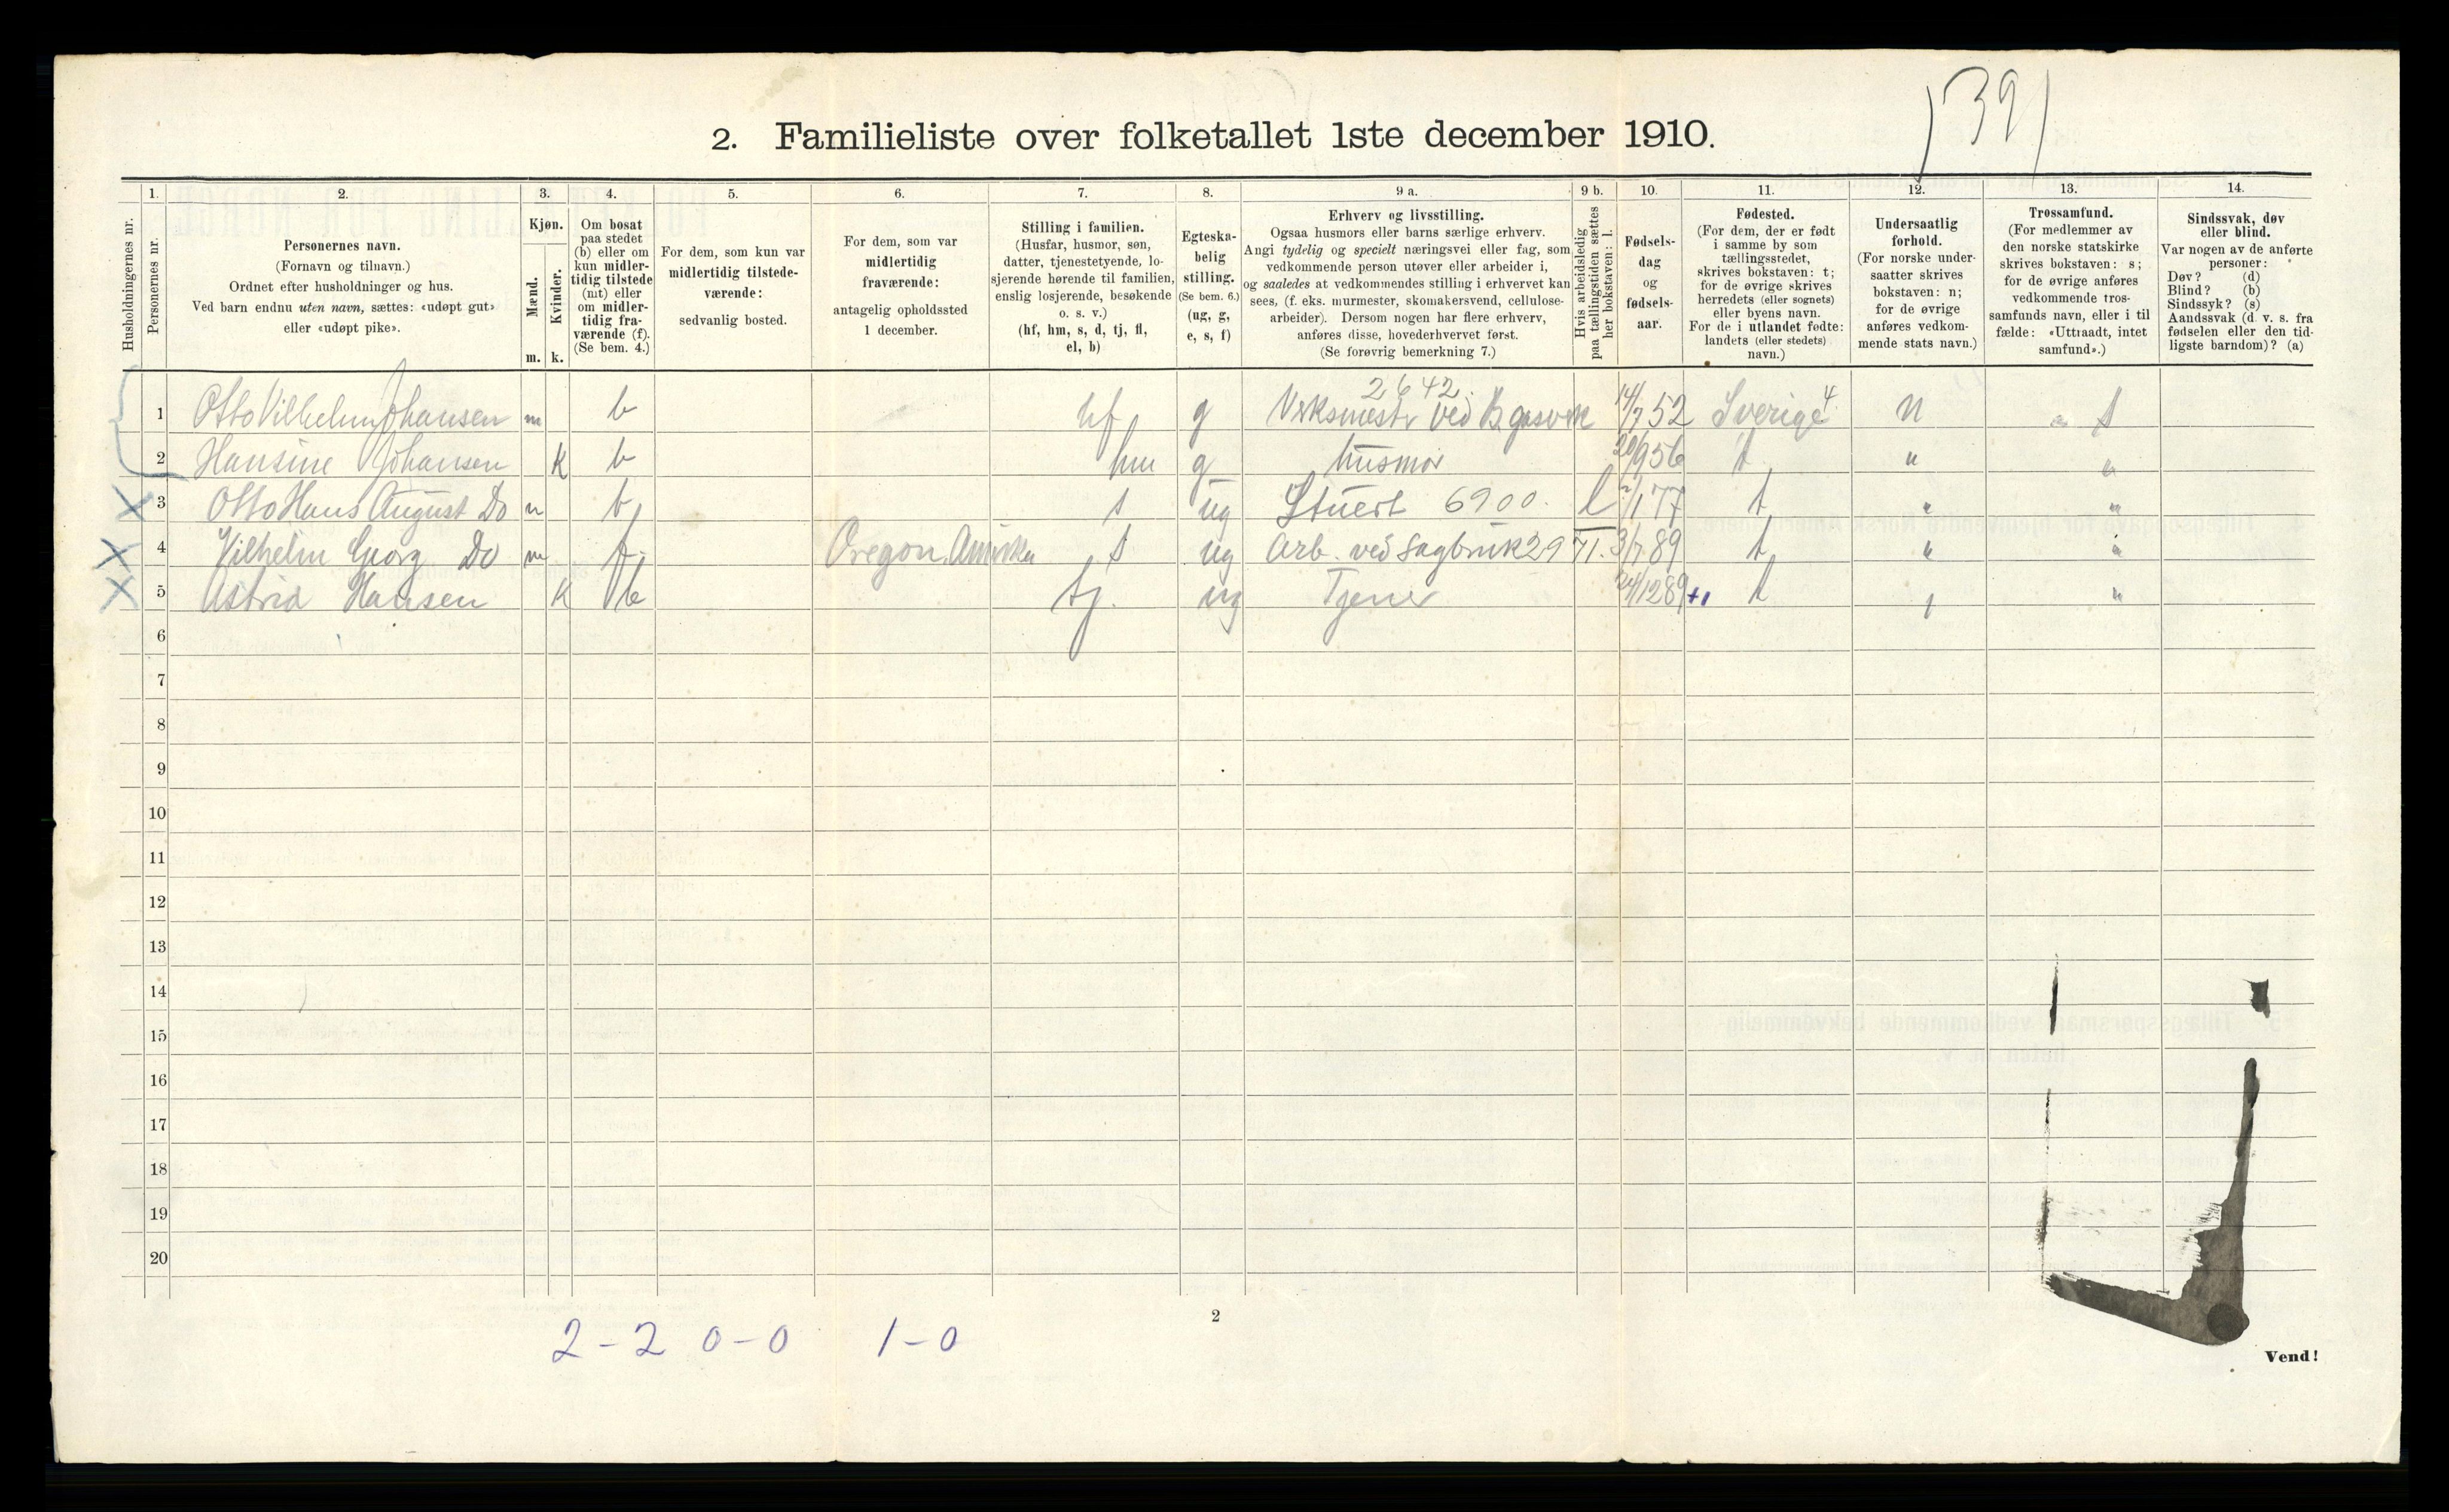 139
2. Familieliste over folketallet 1ste december 1910.
Husholdningernes nr.
1.
Personernes nr.
2.
Personernes navn.
(Fornavn og tilnavn.)
Ordnet efter husholdninger og hus.
Ved barn endnu uten navn, sættes: «udøpt gut»
eller «udøpt pike».
3.
Kjøn.
Mænd.
m.
Kvinder.
k.
4.
Om bosat
paa stedet
(b) eller om
kun midler-
tidig tilstede
(mt) eller
om midler-
tidig fra-
værende (f).
(Se bem. 4.)
5.
For dem, som kun var
midlertidig tilstede-
værende:
sedvanlig bosted.
6.
For dem, som var
midlertidig
fraværende:
antagelig opholdssted
1 december.
7.
Stilling i familien.
(Husfar, husmor, søn,
datter, tjenestetyende, lo-
sjerende hørende til familien,
enslig losjerende, besøkende
o. s. v.)
(hf, hm, s, d, tj, fl,
el, b)
8.
Egteska-
belig
stilling.
(Se bem. 6.)
(ug, g,
e, s, f)
9 a.
Erhverv og livsstilling.
Ogsaa husmors eller barns særlige erhverv.
Angi tydelig og specielt næringsvei eller fag, som
vedkommende person utøver eller arbeider i,
og saaledes at vedkommendes stilling i erhvervet kan
sees, (f. eks. murmester, skomakersvend, cellulose-
arbeider). Dersom nogen har flere erhverv,
anføres disse, hovederhvervet først.
(Se forøvrig bemerkning 7.)
9 b.
Hvis arbeidsledig
paa tællingstiden sættes
her bokstaven: l.
10.
Fødsels-
dag
og
fødsels-
aar.
11.
Fødested.
(For dem, der er født
i samme by som
tællingsstedet,
skrives bokstaven: t;
for de øvrige skrives
herredets (eller sognets)
eller byens navn.
For de i utlandet fødte:
landets (eller stedets)
navn.)
12.
Undersaatlig
forhold.
(For norske under-
saatter skrives
bokstaven: n;
for de øvrige
anføres vedkom-
mende stats navn.)
13.
Trossamfund.
(For medlemmer av
den norske statskirke
skrives bokstaven: s;
for de øvrige anføres
vedkommende tros-
samfunds navn, eller i til
fælde: «Uttraadt, intet
samfund».)
14.
Sindssvak, døv
eller blind.
Var nogen av de anførte
personer:
Døv? (d)
Blind? (b)
Sindssyk? (s)
Aandssvak (d. v. s. fra
fødselen eller den tid-
ligste barndom)? (a)
2642.
1 Otto Vilhelm Johansen m b hf g Verksmestr ved B. gasverk 14/7 52 Sverige 4 n s
2 Hansine Johansen K b hm g husmor 20/9 56 t " "
X 3 Otto Hans August Do m b s ug Stuert 6900. l 2/1 77 t " "
XX 4 Vilhelm Georg Do m f Oregon, Amerika s ug Arb. ved Sagbruk 29 3/7 89 t " "
XX 5 Astrid Hansen K b tj. ug Tjener 24/12 89 +1 t "
6
7
8
9
10
11
12
13
14
15
16
17
18
19
20
2
2-2 0-0 1-0
Vend!